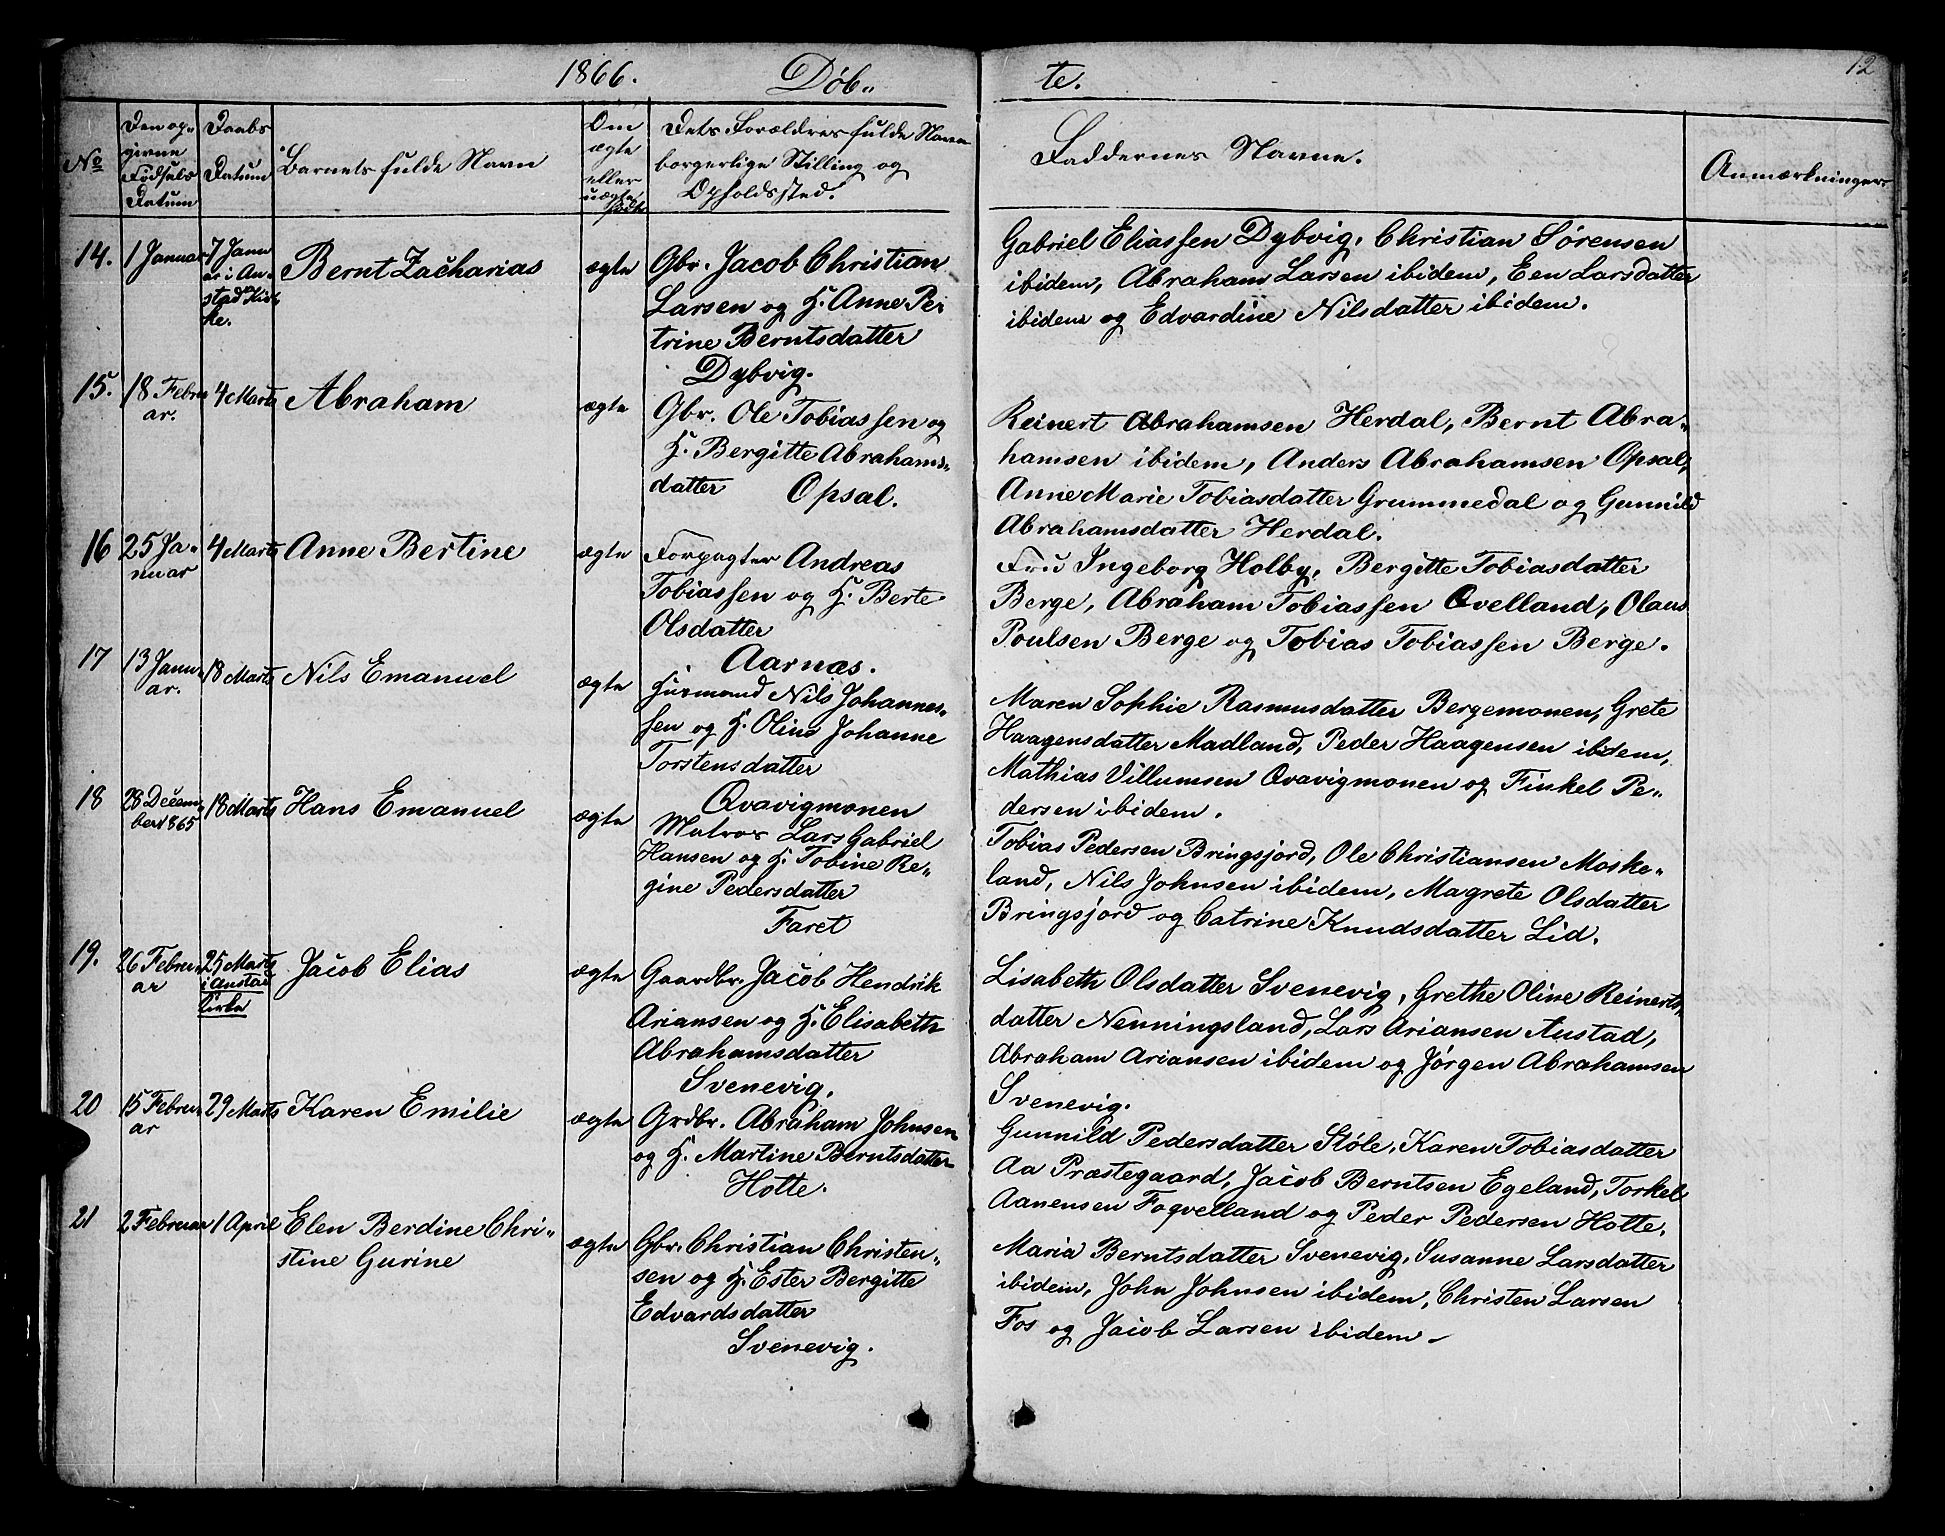 1866. Døb-
te. 12
No
Den op-
givne
Fødsels
Datum
Daabs
Datum
Barnets fulde Navn
Om
ægte
eller
uægte
født
Dets Forældres fulde Navn
borgerlige Stilling og
Opholdssted.
Faddernes Navne.
Anmærkninger
14. 1 Januar
7 Janu
ar i Au-
stad Kir
ke.
Bernt Zacharias
ægte
Gbr. Jacob Christian
Larsen og H. Anne Pe-
trine Berntsdatter
Dybvig.
Gabriel Eliassen Dybvig, Christian Sørensen
ibidem, Abraham Larsen ibidem, Een Larsdatter
ibidem og Edvardine Nilsdatter ibidem.
15. 18 Febru
ar.
4 Marts
Abraham
ægte
Gbr. Ole Tobiassen og
H. Bergitte Abrahams-
datter Opsal.
Reinert Abrahamsen Herdal, Bernt Abra-
hamsen ibidem, Anders Abrahamsen Opsal,
Anne Marie Tobiasdatter Grummedal og Gunnild
Abrahamsdatter Herdal.
16 25 Ja-
nuar
4 Marts
Anne Bertine
ægte
Forpagter Andreas
Tobiassen og H. Berte
Olsdatter
Aarnæs.
Fru Ingeborg Holby, Bergitte Tobiasdatter
Berge, Abraham Tobiassen Qvelland, Olaus
Poulsen Berge og Tobias Tobiassen Berge.
17 13 Janu-
ar.
18 Marts
Nils Emanuel
ægte
Husmand Nils Johannes-
sen og H. Oline Johanne
Torstensdatter
Qvavigmonen
Maren Sophie Rasmusdatter Bergemonen, Grete
Haagensdatter Madland, Peder Haagensen ibidem,
Mathias Villumsen Qvavigmonen og Finkel Pe-
dersen ibidem.
18 28 Decem-
ber 1865
18 Marts
Hans Emanuel
ægte
Matros Lars Gabriel
Hansen og H. Tobine Re-
gine Pedersdatter
Faret
Tobias Pedersen Bringsjord, Ole Christiansen Moske-
land, Nils Johnsen ibidem, Magrete Olsdatter
Bringsjord og Catrine Knudsdatter Lid.
19. 26 Febru
ar
25 Marts
i Austad
Kirke
Jacob Elias
ægte
Gaardbr. Jacob Hendrik
Ariansen og H. Elisabeth
Abrahamsdatter
Svenevig.
Lisabeth Olsdatter Svenevig, Grethe Oline Reinerts-
datter Nenningsland, Lars Ariansen Austad,
Abraham Ariansen ibidem og Jørgen Abrahamsen
Svenevig.
20 15 Febru
ar
29 Marts
Karen Emilie
ægte
Grdbr. Abraham Johnsen
og H. Martine Berntsdatter
Hotte.
Gunnild Pedersdatter Støle, Karen Tobiasdatter
Aa Præstegaard, Jacob Berntsen Egeland, Torkel
Aanensen Foqvelland og Peder Pedersen Hotte.
21 2 Februar
1 April
Elen Berdine Chri-
stine Gurine
ægte
Gbr. Christian Christen-
sen og H. Ester Bergitte
Edvardsdatter
Svenevig.
Maria Berntsdatter Svenevig, Susanne Larsdatter
ibidem, John Johnsen ibidem, Christen Larsen
Fos og Jacob Larsen ibidem